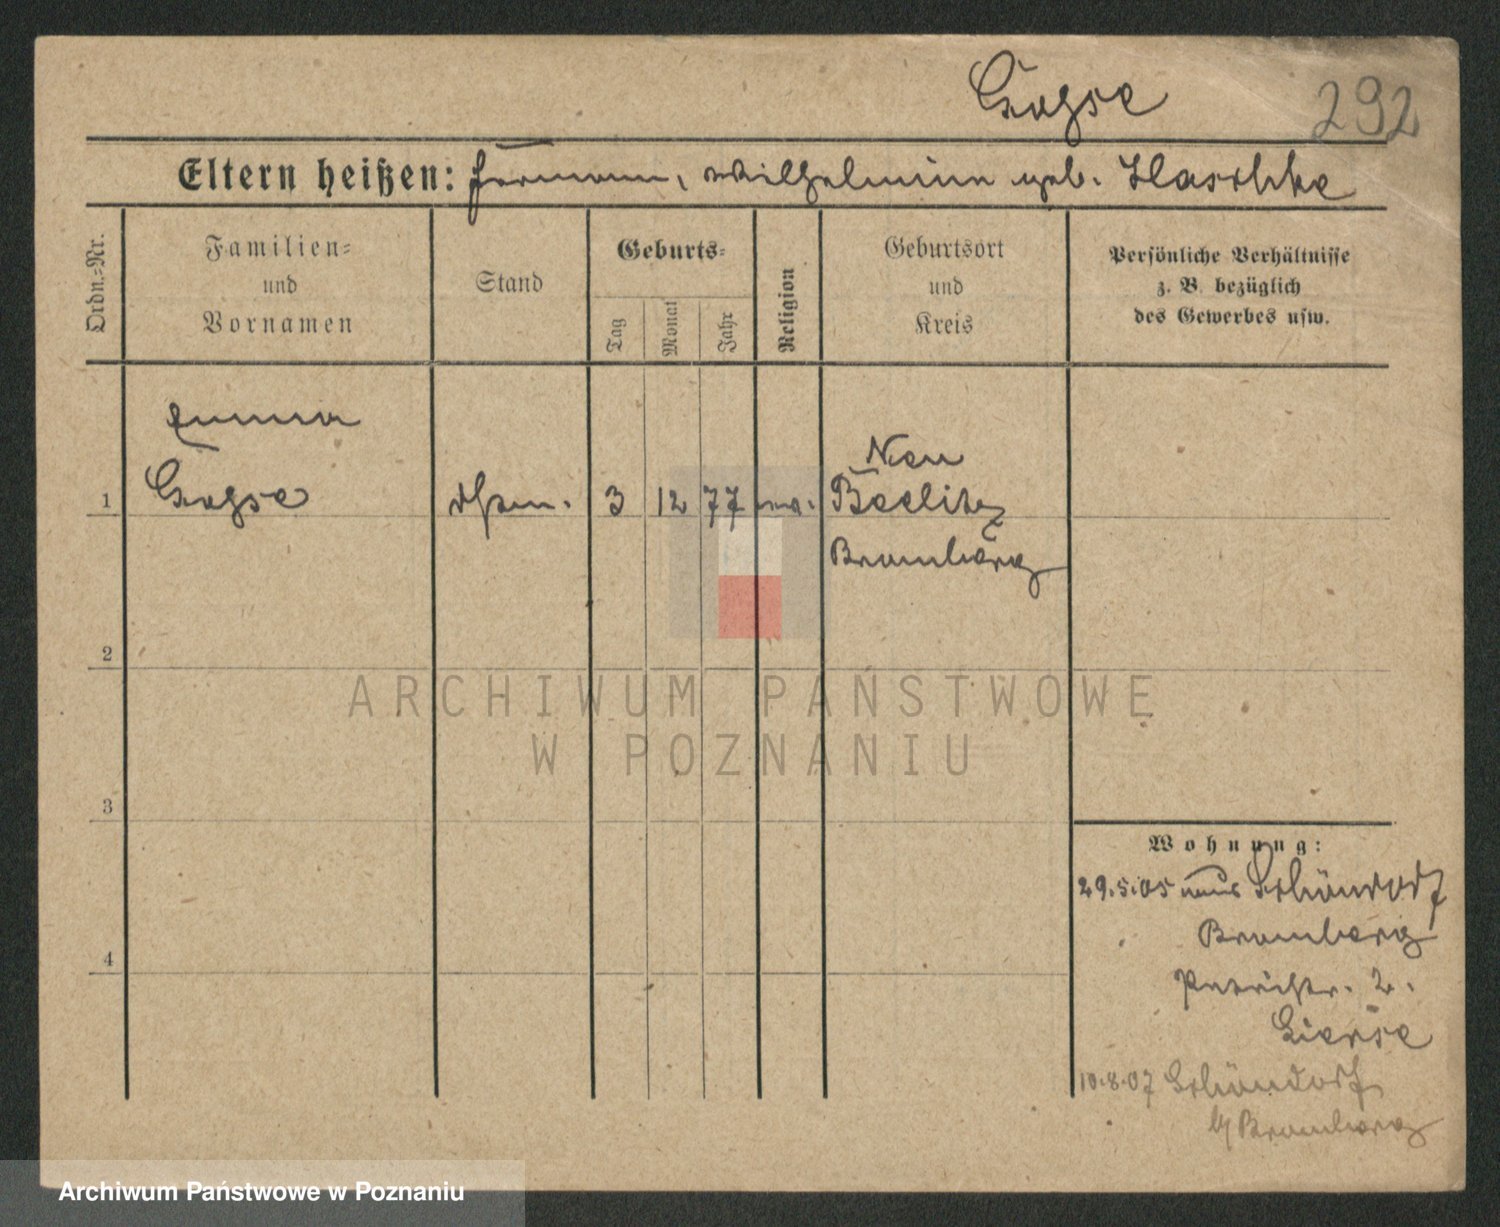 Gogse 292
Eltern heißen: Hermann, Wilhelmine geb. Haschke
Ordn.=Nr.
Familien=
und
Vornamen
Stand
Geburts=
Tag
Monat
Jahr
Religion
Geburtsort
und
Kreis
Persönliche Verhältnisse
z. B. bezüglich
des Gewerbes usw.
Emma
Neu
1 Gogse 3 12 77 Beelitz
Bromberg
2
3
4
ARCHIWUM PAŃSTWOWE
W POZNANIU
Wohnung:
29.5.05 aus Schöndorf
Bromberg
2.
Gierse
10.8.07 Schöndorf
b/ Bromberg
Archiwum Państwowe w Poznaniu